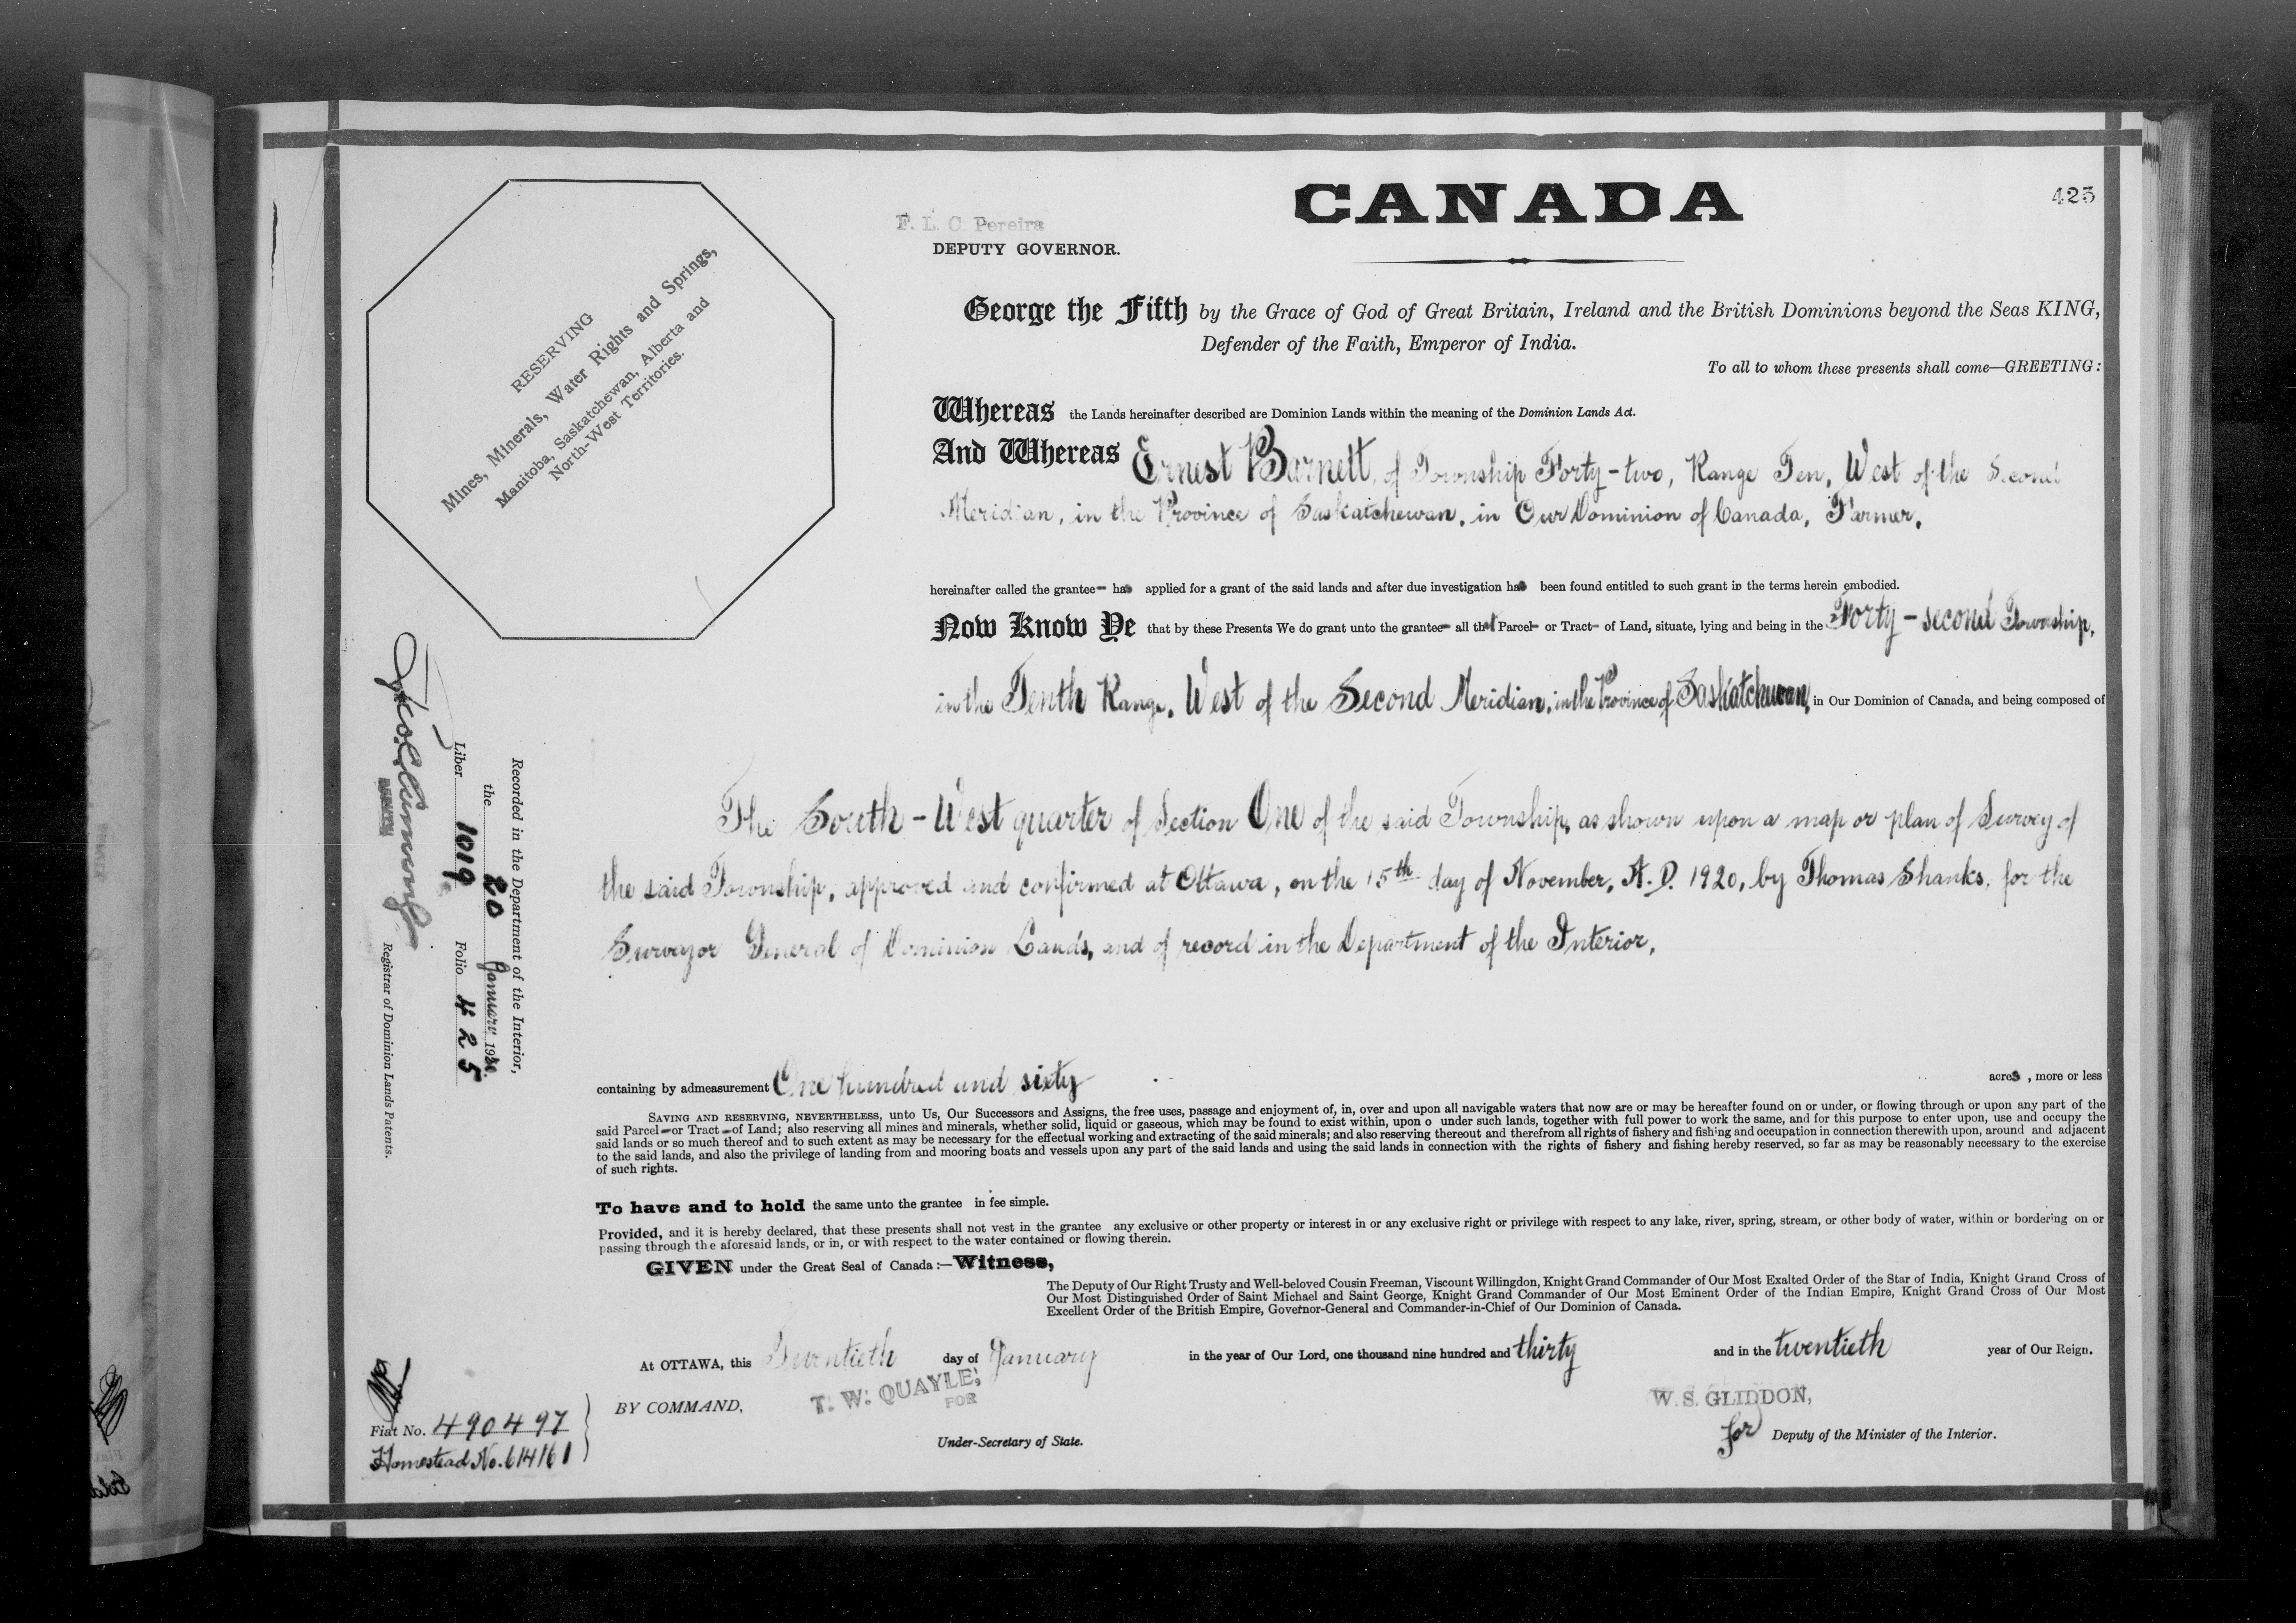 CANADA
425
F. L. C. Pereira
DEPUTY GOVERNOR.
RESERVING
Mines, Minerals, Water Rights and Springs,
Manitoba, Saskatchewan, Alberta and
North-West Territories.
George the Fifth by the Grace of God of Great Britain, Ireland and the British Dominions beyond the Seas KING,
Defender of the Faith, Emperor of India.
To all to whom these presents shall come—GREETING:
Whereas the Lands hereinafter described are Dominion Lands within the meaning of the Dominion Lands Act.
And Whereas Ernest Barnett, of Township Forty-two, Range Ten, West of the Second
Meridian, in the Province of Saskatchewan, in Our Dominion of Canada, Farmer,
hereinafter called the grantee has applied for a grant of the said lands and after due investigation has been found entitled to such grant in the terms herein embodied.
Now Know Ye that by these Presents We do grant unto the grantee all that Parcel or Tract of Land, situate, lying and being in the Forty-second Township,
in the Tenth Range, West of the Second Meridian, in the Province of Saskatchewan, in Our Dominion of Canada, and being composed of
The South-West quarter of Section One of the said Township, as shown upon a map or plan of Survey of
the said Township, approved and confirmed at Ottawa, on the 15th day of November, A.D. 1920, by Thomas Shanks, for the
Surveyor General of Dominion Lands, and of record in the Department of the Interior,
containing by admeasurement One hundred and sixty acres, more or less
SAVING AND RESERVING, NEVERTHELESS, unto Us, Our Successors and Assigns, the free uses, passage and enjoyment of, in, over and upon all navigable waters that now are or may be hereafter found on or under, or flowing through or upon any part of the
said Parcel or Tract of Land; also reserving all mines and minerals, whether solid, liquid or gaseous, which may be found to exist within, upon o under such lands, together with full power to work the same, and for this purpose to enter upon, use and occupy the
said lands or so much thereof and to such extent as may be necessary for the effectual working and extracting of the said minerals; and also reserving thereout and therefrom all rights of fishery and fishing and occupation in connection therewith upon, around and adjacent
to the said lands, and also the privilege of landing from and mooring boats and vessels upon any part of the said lands and using the said lands in connection with the rights of fishery and fishing hereby reserved, so far as may be reasonably necessary to the exercise
of such rights.
To have and to hold the same unto the grantee in fee simple.
Provided, and it is hereby declared, that these presents shall not vest in the grantee any exclusive or other property or interest in or any exclusive right or privilege with respect to any lake, river, spring, stream, or other body of water, within or bordering on or
passing through the aforesaid lands, or in, or with respect to the water contained or flowing therein.
GIVEN under the Great Seal of Canada:—Witness,
The Deputy of Our Right Trusty and Well-beloved Cousin Freeman, Viscount Willingdon, Knight Grand Commander of Our Most Exalted Order of the Star of India, Knight Grand Cross of
Our Most Distinguished Order of Saint Michael and Saint George, Knight Grand Commander of Our Most Eminent Order of the Indian Empire, Knight Grand Cross of Our Most
Excellent Order of the British Empire, Governor-General and Commander-in-Chief of Our Dominion of Canada.
At OTTAWA, this Twentieth day of January in the year of Our Lord, one thousand nine hundred and thirty and in the twentieth year of Our Reign.
BY COMMAND,
T. W. QUAYLE,
FOR
Under-Secretary of State.
W. S. GLIDDON,
for Deputy of the Minister of the Interior.
Fiat No. 490497
Homestead No. 614161
Recorded in the Department of the Interior,
the 20 January 1930.
Liber 1019 Folio 425
DEPUTY
Registrar of Dominion Lands Patents.